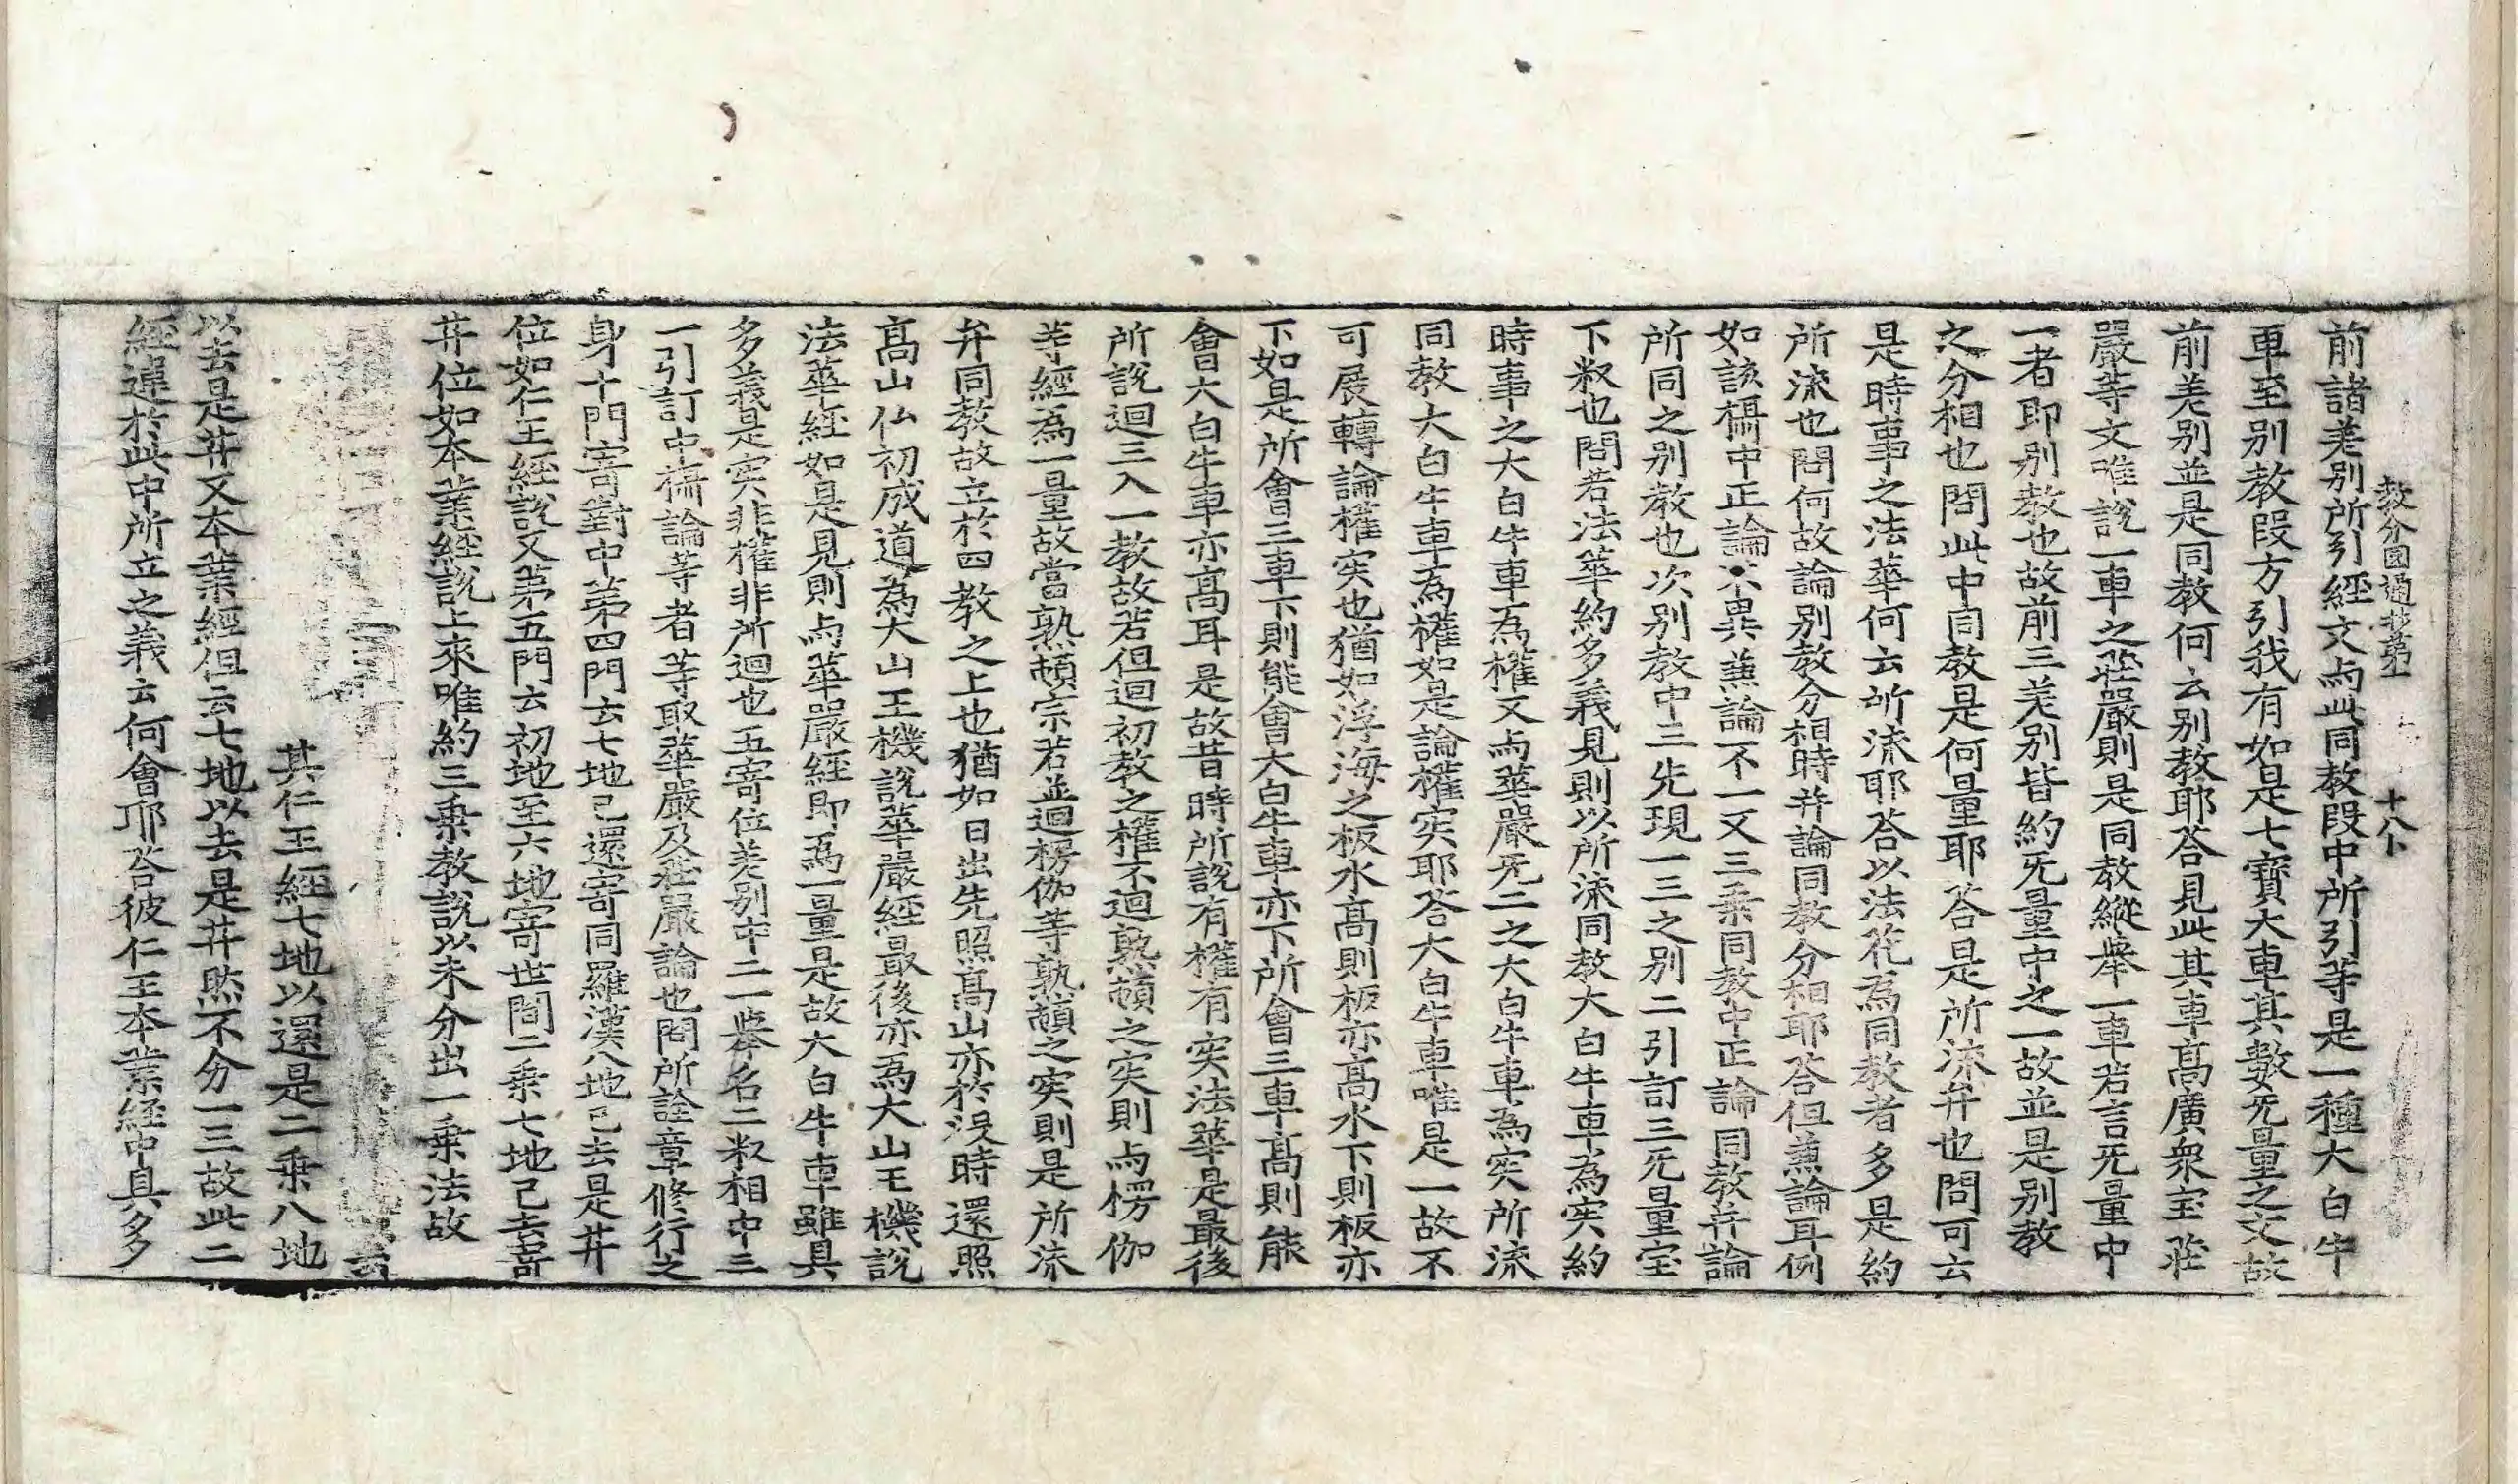 教分圓通抄第一 十八卜
前諸差別所引經文与此同教段中所引等是一種大白牛
車至別教段方引我有如是七寶大車其數旡量之文故
前差別並是同教何云別教耶荅見此其車髙廣衆宝莊
嚴等文唯說一車之莊嚴則是同教縱舉一車若言旡量中
一者即別教也故前三差別皆約旡量中之一故並是別教
之分相也問此中同教是何量耶荅是所流弁也問可云
是時事之法華何云所流耶荅以法花為同教者多是約
所流也問何故論別教分相時并論同教分相耶荅但兼論耳例
如該攝中正論不異兼論不一又三乗同教中正論同教并論
所同之別教也次別教中二先現一三之別二引訂三旡量宝
下叙也問若法華約多義見則以所流同教大白牛車為实約
時事之大白牛車為權又与華嚴旡二之大白牛車為实所流
同教大白牛車為權如是論權实耶荅大白牛車唯是一故不
可展轉論權实也猶如浮海之板水髙則板亦髙水下則板亦
下如是所會三車下則能會大白牛車亦下所會三車髙則能
會大白牛車亦髙耳是故昔時所說有權有实法華是最後
所說迴三入一教故若但迴初教之權不迴熟頓之实則与楞伽
等經為一量故當熟頓宗若並迴楞伽等熟頓之实則是所流
弁同教故立於四教之上也猶如日出先照髙山亦於没時還照
髙山仏初成道為大山王機說華嚴經最後亦為大山王機說
法華經如是見則与華嚴經即為一量是故大白牛車雖具
多義是实非權非所迴也五寄位差別中二一舉名二叙相中三
一引訂中攝論等者等取華嚴及莊嚴論也問所詮章修行之
身十門寄對中第四門云七地已還寄同羅漢八地已去是井
位如仁王經說又第五門云初地至六地寄世間二乗七地已去寄
井位如本業經說上來唯約三乗教說以未分出一乗法故
云
其仁王經七地以還是二乗八地
以去是井又本業經但云七地以去是井然不分一三故此二
經違於此中所立之義云何會耶荅彼仁王本業經中具多